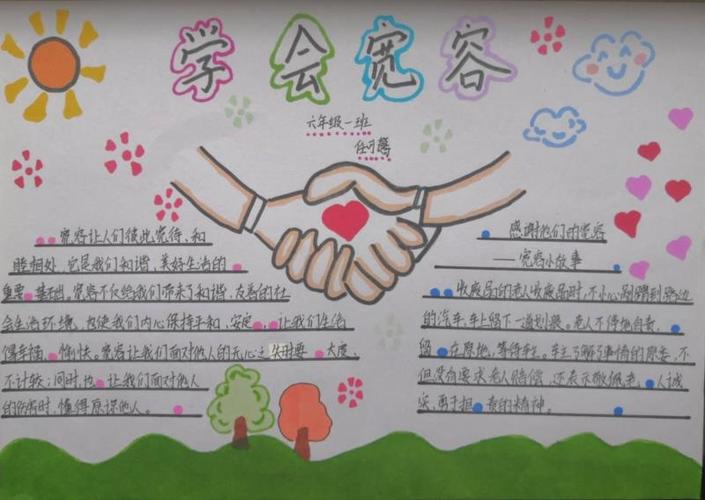 学会宽容
六年级一班
任可馨
宽容让人们彼此宽待、和
睦相处,它是我们和谐、美好生活的
重要基础。宽容不仅给我们带来了和谐、友善的社
会生活环境,也使我们内心保持平和、安定,让我们生活
得幸福愉快。宽容让我们面对他人的无心之失时要大度、
不计较;同时,也让我们面对他人
的伤害时,懂得原谅他人。
感谢他们的宽容
——宽容小故事
收废品的老人收废品时,不小心剐蹭到路边
的汽车,车上留下一道划痕。老人不停地自责,
留在原地,等待车主。车主了解了事情的原委,不
但没有要求老人赔偿,还表示敬佩老人诚
实、勇于担责的精神。